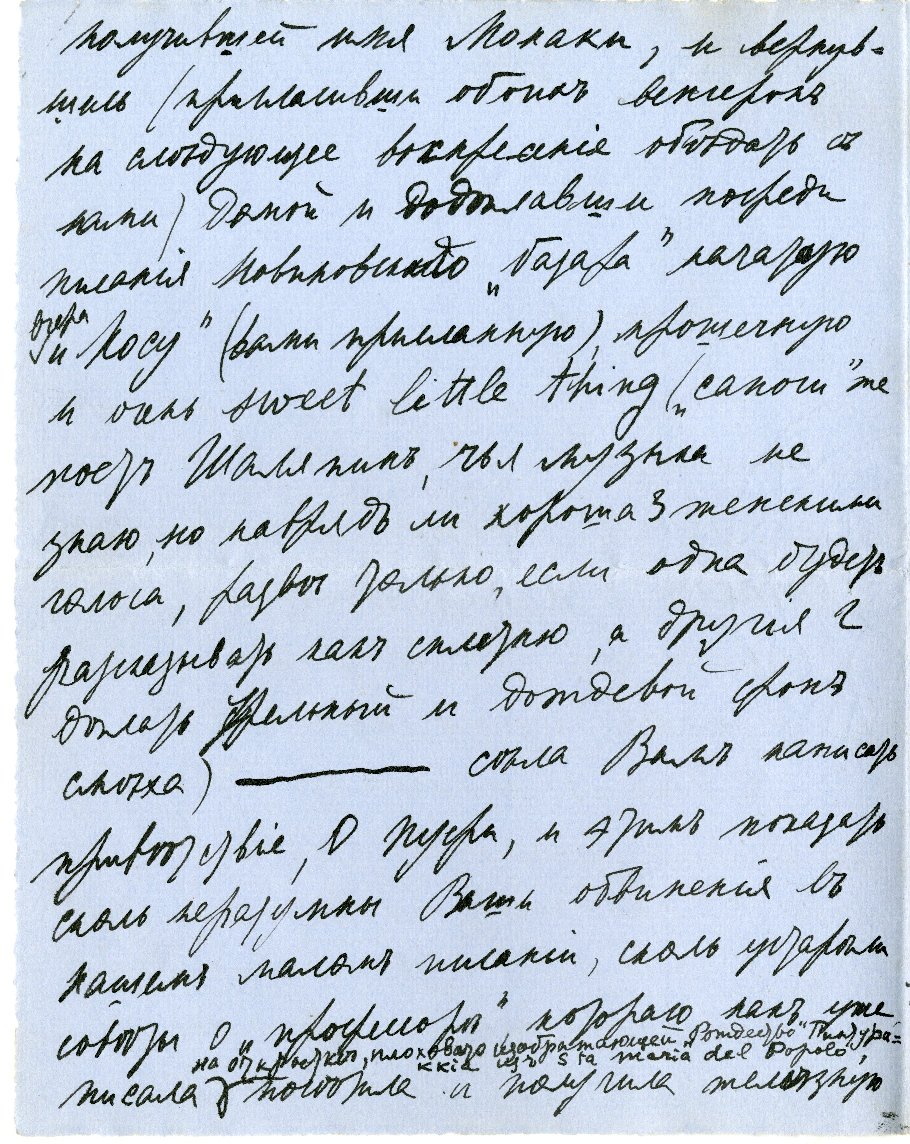 получившей имя Монаки, и вернув-
шись (пригласивши обоихъ венгеровъ
на слѣдующее воскресенiе обѣдать съ
нами) домой и додѣлавши посреди
писанiя Новиковскаго „базара" начатую
вчера
и „Косу" (Вами присланную), прошечную
и очень sweet little thing („сапоги" же
поетъ Шаляпинъ, чья музыка не
знаю, но наврядъ ли хороша 3 женскими
голоса, развѣ только, если одна будетъ
разсказывать какъ сплетню, а другiя 2
дѣлать трельный и дождевой фонъ
смѣха) ——— сѣла Вамъ написать
привѣтствiе, О Пусри, и этимъ показать
сколь неразумны Ваши обвиненiя въ
нашемъ маломъ писанiи, сколь устарѣли
совѣты о „профессорѣ" которою какъ уже
на открыткѣ, плоховато изображающей „Рождество" Пинтури-
ккiа изъ Sta maria del Popolo,
писала побѣдила и получила желѣзную